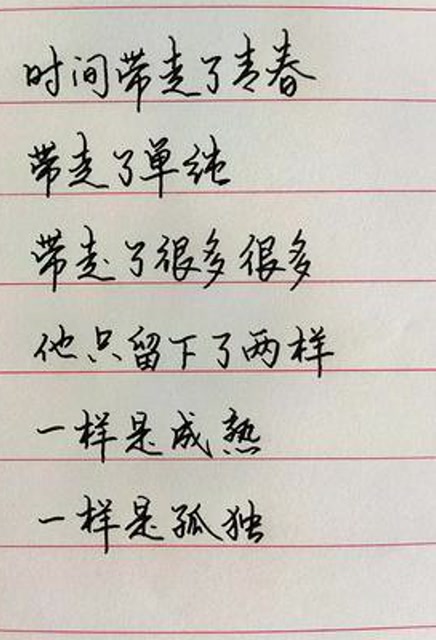 时间带走了青春
带走了单纯
带走了很多很多
他只留下了两样
一样是成熟
一样是孤独